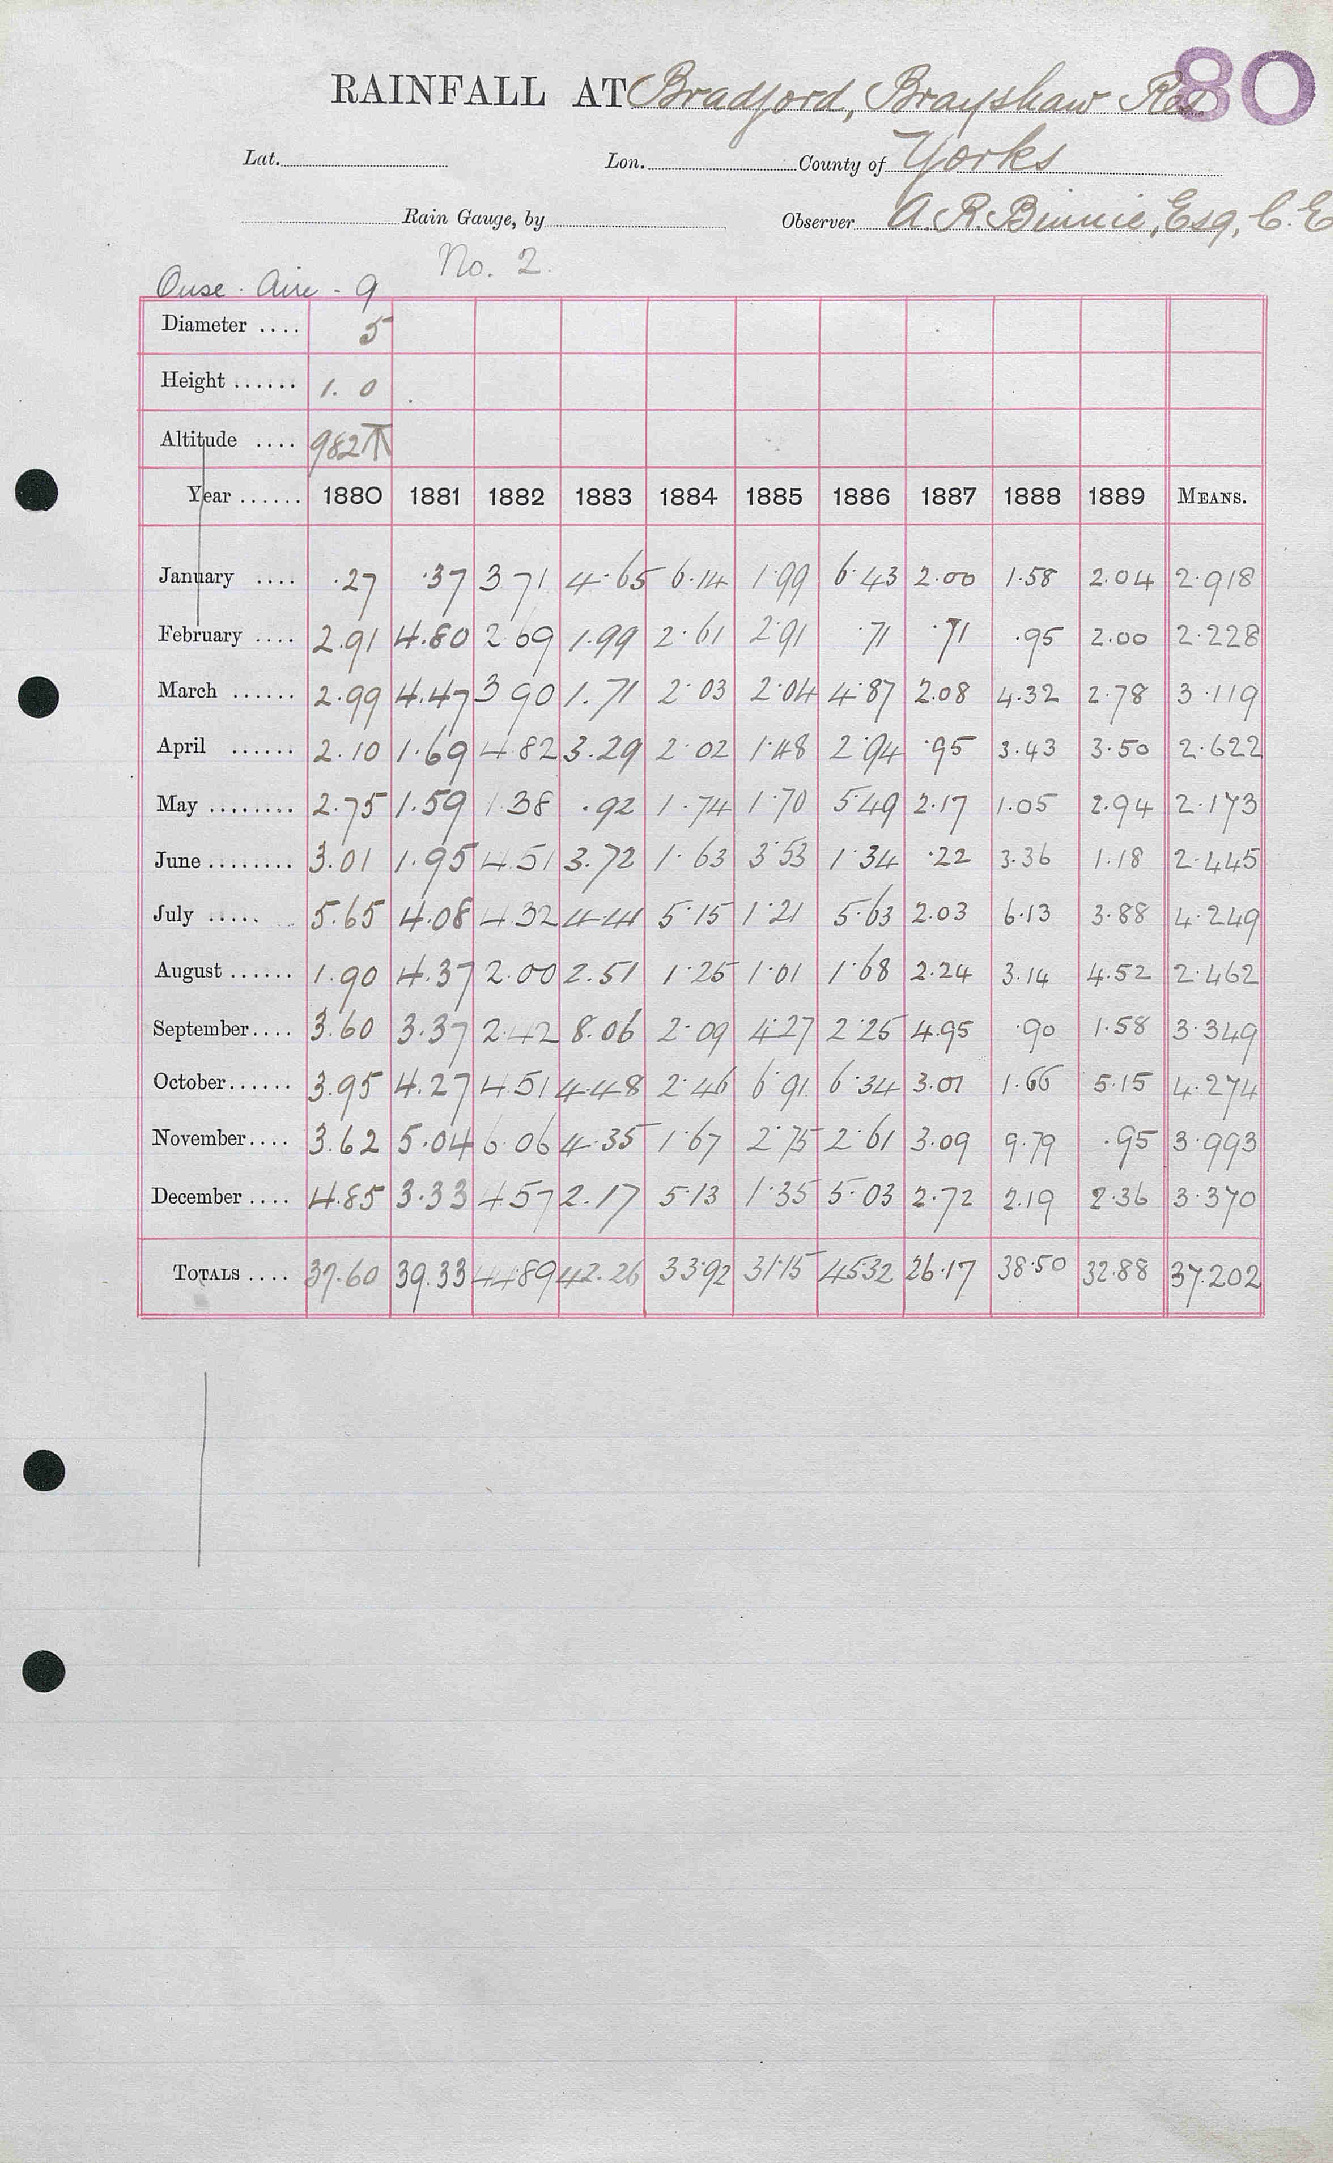 80
RAINFALL AT Bradford, Brayshaw Res
Lat. Lon. County of Yorks
Rain Gauge, by Observer A. R. Binnie, Esq, C.E
No. 2.
Ouse. Aire - 9
Diameter .... 5
Height ...... 1. 0
Altitude .... 982 T
Year ...... 1880 1881 1882 1883 1884 1885 1886 1887 1888 1889 MEANS.
January .... .27 .37 3 71 4.65 6.14 1.99 6.43 2.00 1.58 2.04 2.918
February .... 2.91 4.80 2 69 1.99 2.61 2.91 .71 .71 .95 2.00 2.228
March ...... 2.99 4.47 3 90 1.71 2.03 2.04 4.87 2.08 4.32 2.78 3.119
April ...... 2.10 1.69 4.82 3.29 2.02 1.48 2.94 .95 3.43 3.50 2.622
May ........ 2.75 1.59 1.38 .92 1.74 1.70 5.49 2.17 1.05 2.94 2.173
June ........ 3.01 1.95 4.51 3.72 1.63 3.53 1.34 .22 3.36 1.18 2.445
July ..... 5.65 4.08 4.32 4.44 5.15 1.21 5.63 2.03 6.13 3.88 4.249
August ...... 1.90 4.37 2.00 2.51 1.25 1.01 1.68 2.24 3.14 4.52 2.462
September.... 3.60 3.37 2.42 8.06 2.09 4.27 2.25 4.95 .90 1.58 3.349
October...... 3.95 4.27 4.51 4.48 2.46 6.91 6.34 3.01 1.66 5.15 4.274
November.... 3.62 5.04 6.06 4.35 1.67 2.75 2.61 3.09 9.79 .95 3.993
December .... 4.85 3.33 4.57 2.17 5.13 1.35 5.03 2.72 2.19 2.36 3.370
TOTALS .... 37.60 39.33 44.89 42.26 33.92 31.15 45.32 26.17 38.50 32.88 37.202